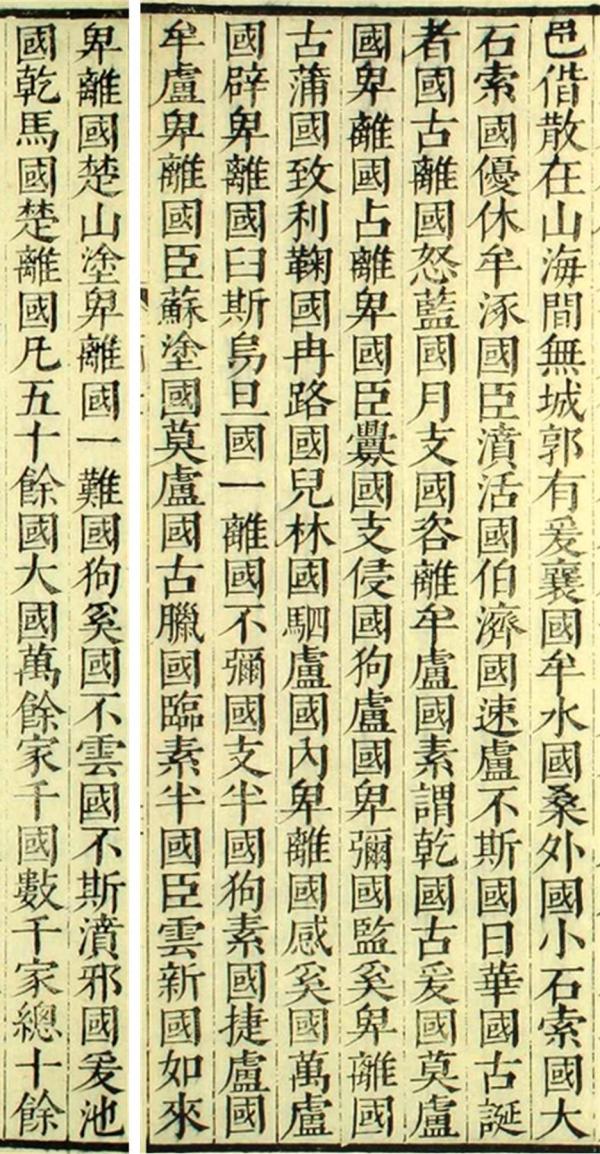 邑偕散在山海間無城郭有爰襄國牟水國桑外國小石索國大
石索國優休牟涿國臣濆活國伯濟國速盧不斯國日華國古誕
者國古離國怒藍國月支國咨離牟盧國素謂乾國古爰國莫盧
國卑離國占離卑國臣釁國支侵國狗盧國卑彌國監奚卑離國
古蒲國致利鞠國冉路國兒林國駟盧國內卑離國感奚國萬盧
國辟卑離國臼斯烏旦國一離國不彌國支半國狗素國捷盧國
牟盧卑離國臣蘇塗國莫盧國古臘國臨素半國臣雲新國如來
卑離國楚山塗卑離國一難國狗奚國不雲國不斯濆邪國爰池
國乾馬國楚離國凡五十餘國大國萬餘家千國數千家總十餘